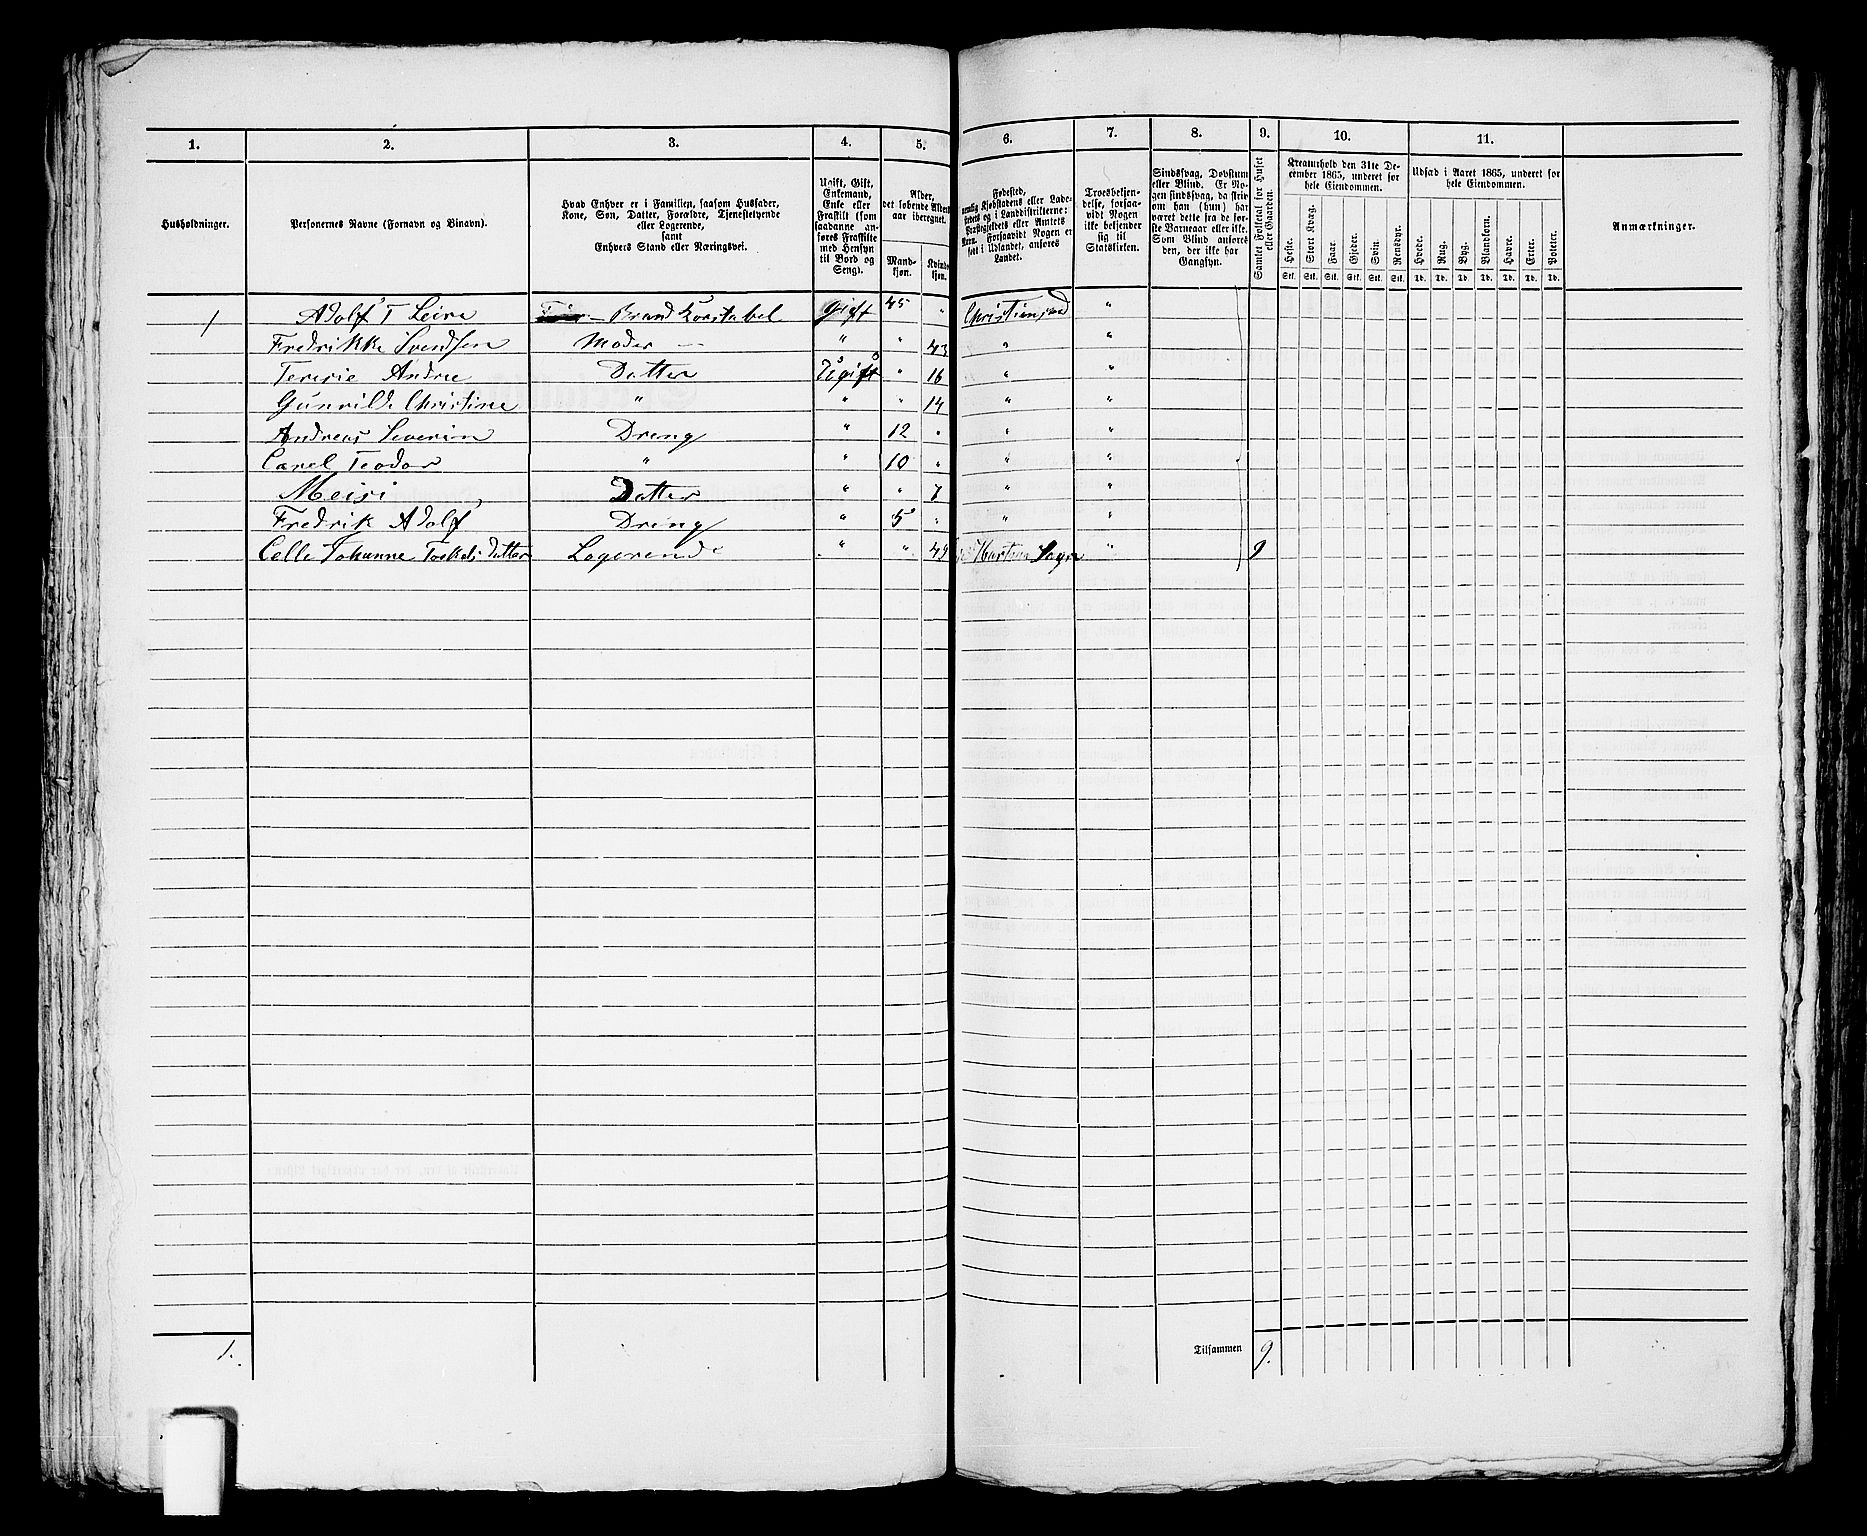 1. 2. 3. 4. 5. 6. 7. 8. 9. 10. 11.
Husholdninger.
Personernes Navne (Fornavn og Binavn).
Hvad Enhver er i Familien, saasom Husfader,
Kone, Søn, Datter, Forældre, Tjenestetyende
eller Logerende,
samt
Enhvers Stand eller Næringsvei.
Ugift, Gift,
Enkemand,
Enke eller
Fraskilt (som
saadanne an-
føres Fraskilte
med Hensyn
til Bord og
Seng).
Alder,
det løbende Alders-
aar iberegnet.
Mand-
kjøn.
Kvinde-
kjøn.
Fødested,
nemlig Kjøbstadens eller Lade-
stedets og i Landdistrikterne:
Præstegjeldets eller Amtets
Navn. Forsaavidt Nogen er
født i Udlandet, anføres
Landet.
Troesbekjen-
delse, forsaa-
vidt Nogen
ikke bekjender
sig til
Statskirken.
Sindssvag, Døvstum
eller Blind. Er No-
gen sindssvag, da skriv
om han (hun) har
været dette fra de før-
ste Barneaar eller ikke.
Som Blind anføres
den, der ikke har
Gangsyn.
Samlet Folketal for Huset
eller Gaarden.
Kreaturhold den 31te De-
cember 1865, underet for
hele Eiendommen.
Heste. Stort Kvæg. Faar. Gjeder. Svin. Rensdyr.
Stk. Stk. Stk. Stk. Stk. Stk.
Udsæd i Aaret 1865, underet for
hele Eiendommen.
Hvede. Rug. Byg. Blandkorn. Havre. Erter. Poteter.
Td. Td. Td. Td. Td. Td. Td.
Anmærkninger.
1 Adolf T Leire Brand Konstabel Gift 45 " Christiansand "
Fredrikke Svendsen Moder " " 43 " "
Teresie Andrea Datter Ugift " 16 " "
Gunvilde Christine " " " 14 " "
Andreas Severin Dreng " 12 " " "
Carel Teodor " " 10 " " "
Meisi Datter " " 7 " "
Fredrik Adolf Dreng " 5 " " "
Johanne Torkels Datter Logerende " " 49 Sogn " 9
1. Tilsammen 9.